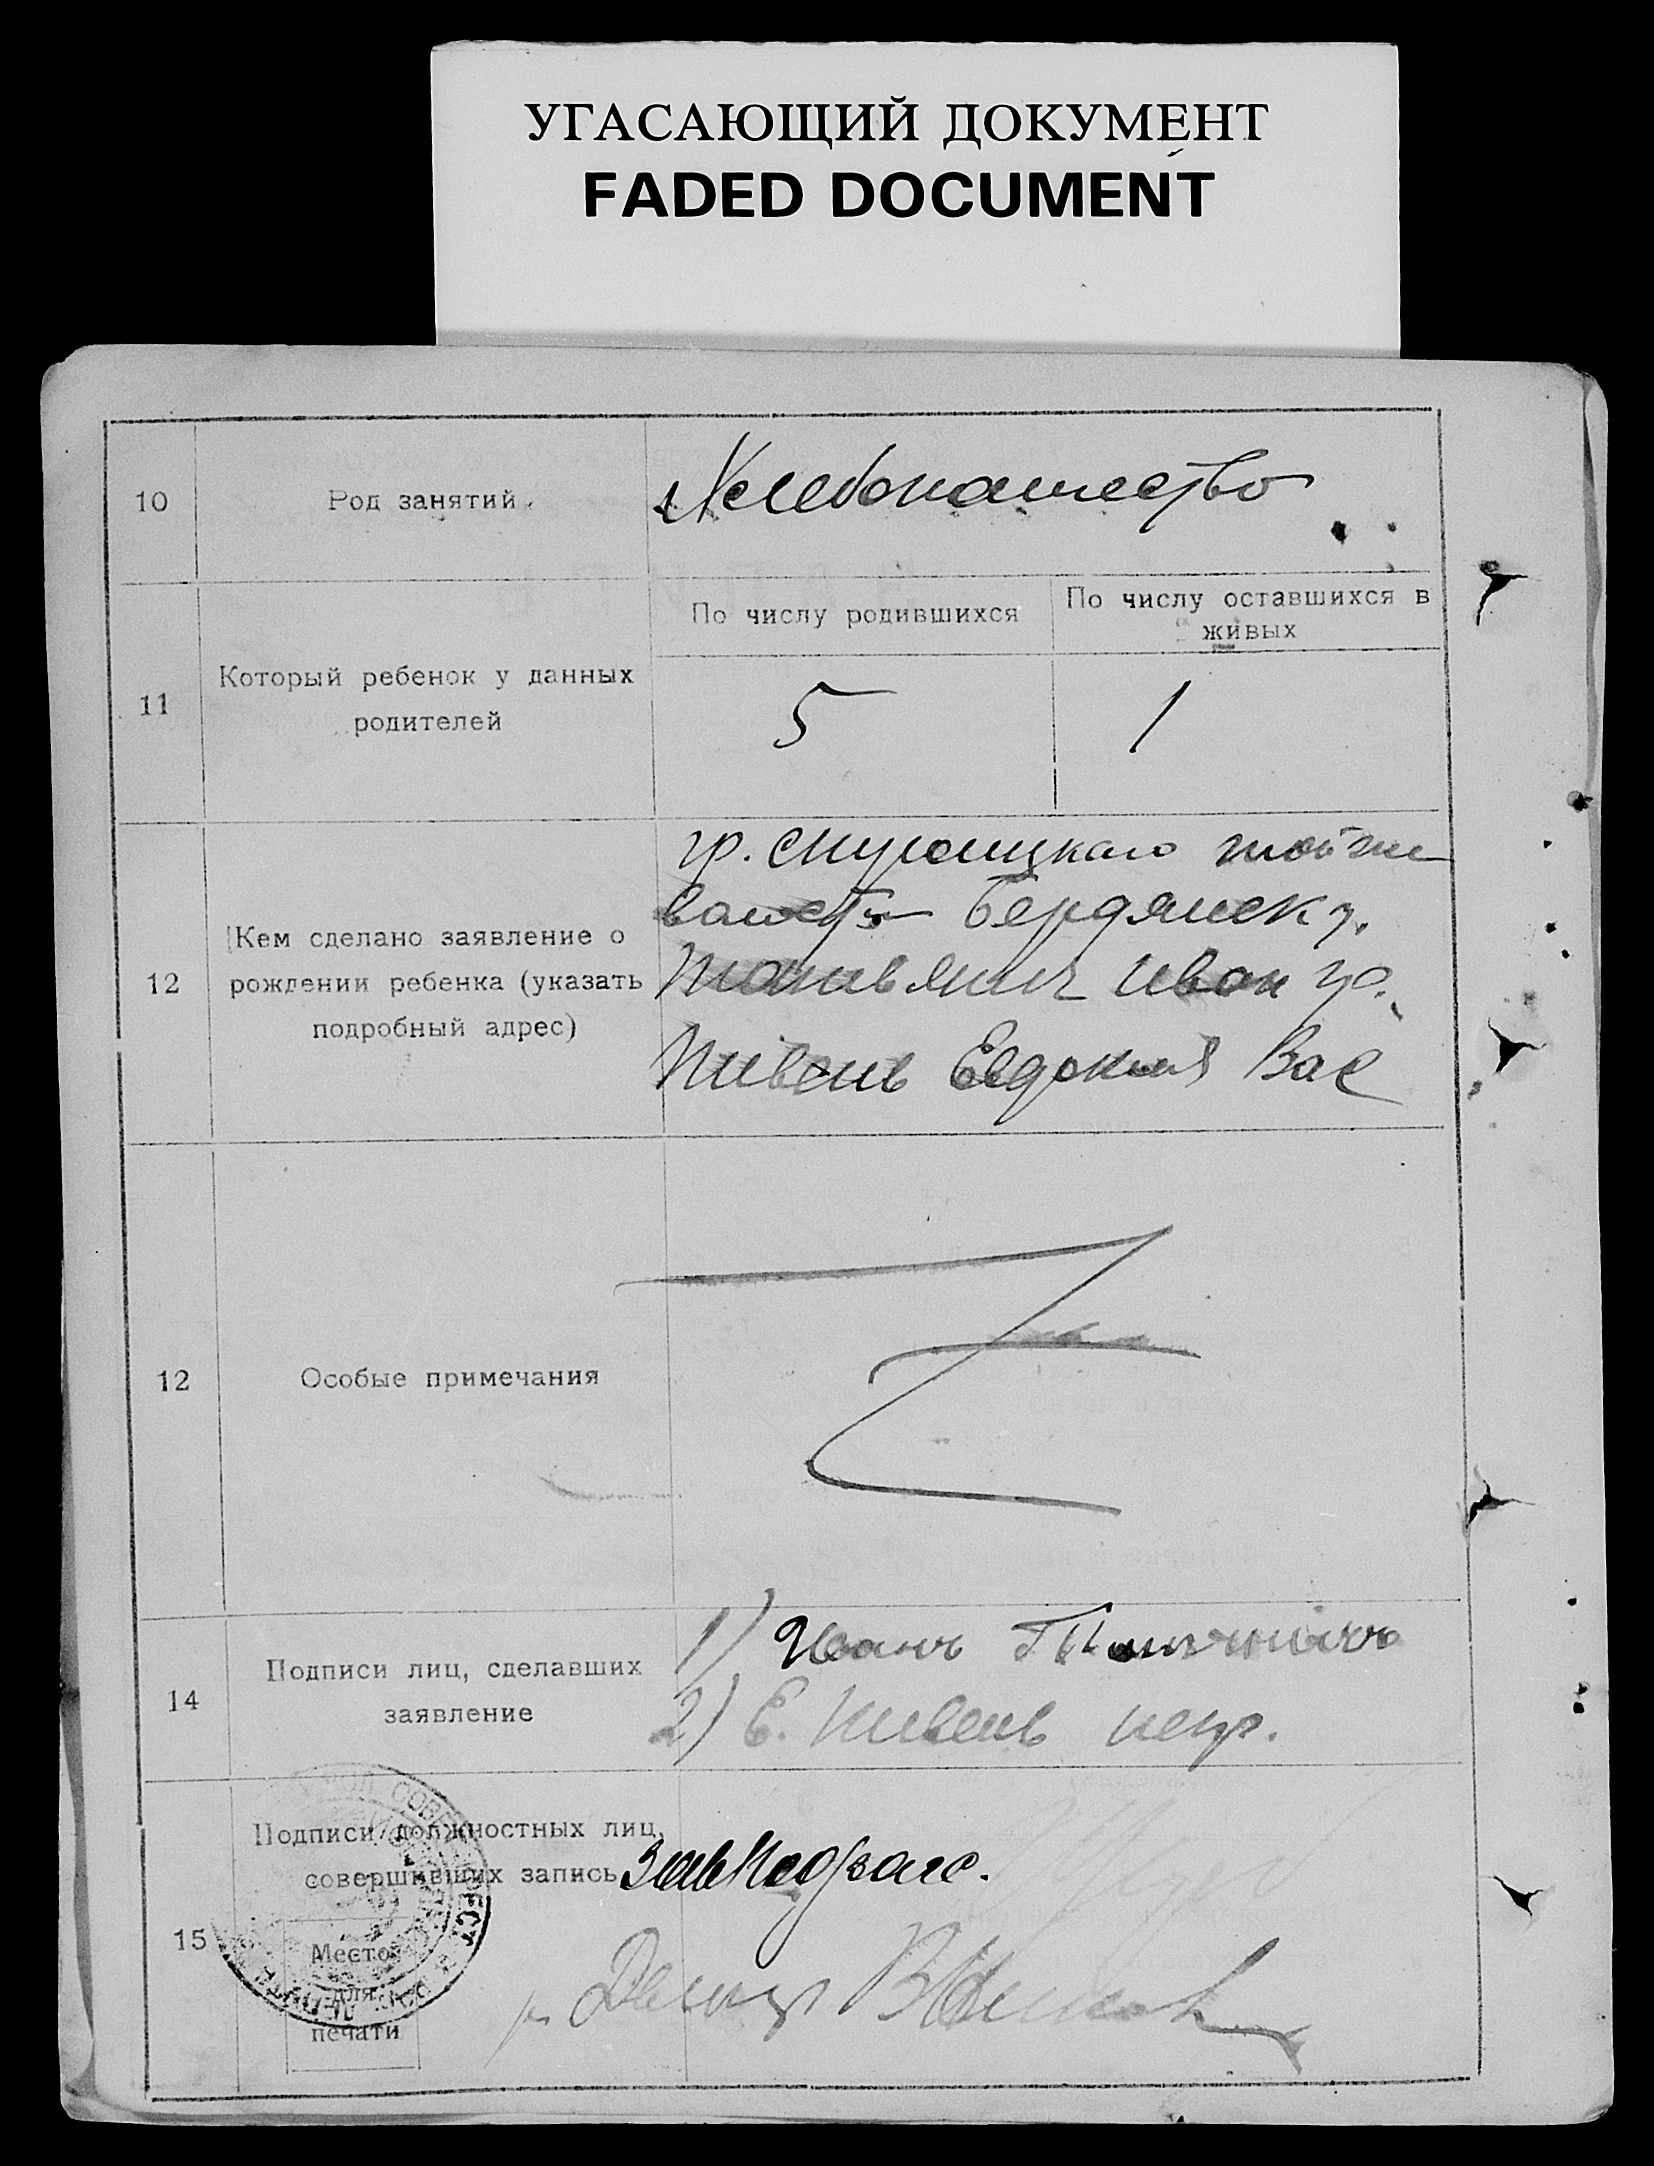 УГАСАЮЩИЙ ДОКУМЕНТ
FADED DOCUMENT
10 Род занятий. Хлебопашество
11 Который ребенок у данных родителей
По числу родившихся
По числу оставшихся в
живых
5 1
12 Кем сделано заявление о
рождении ребенка (указать
подробный адрес)
гр. той же
волости Бердянск у.
Иван гр.
Пивень Евдокия Вас
12 Особые примечания
14 Подписи лиц, сделавших
заявление
1) Иванъ
2) Е. Пивень негр.
15 Подписи должностных лиц,
совершивших запись ЗавПодзагс.
Место
для
печати